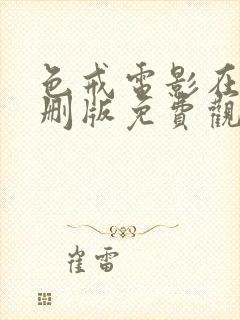 色戒電影在
刪版免費觀
崔雷